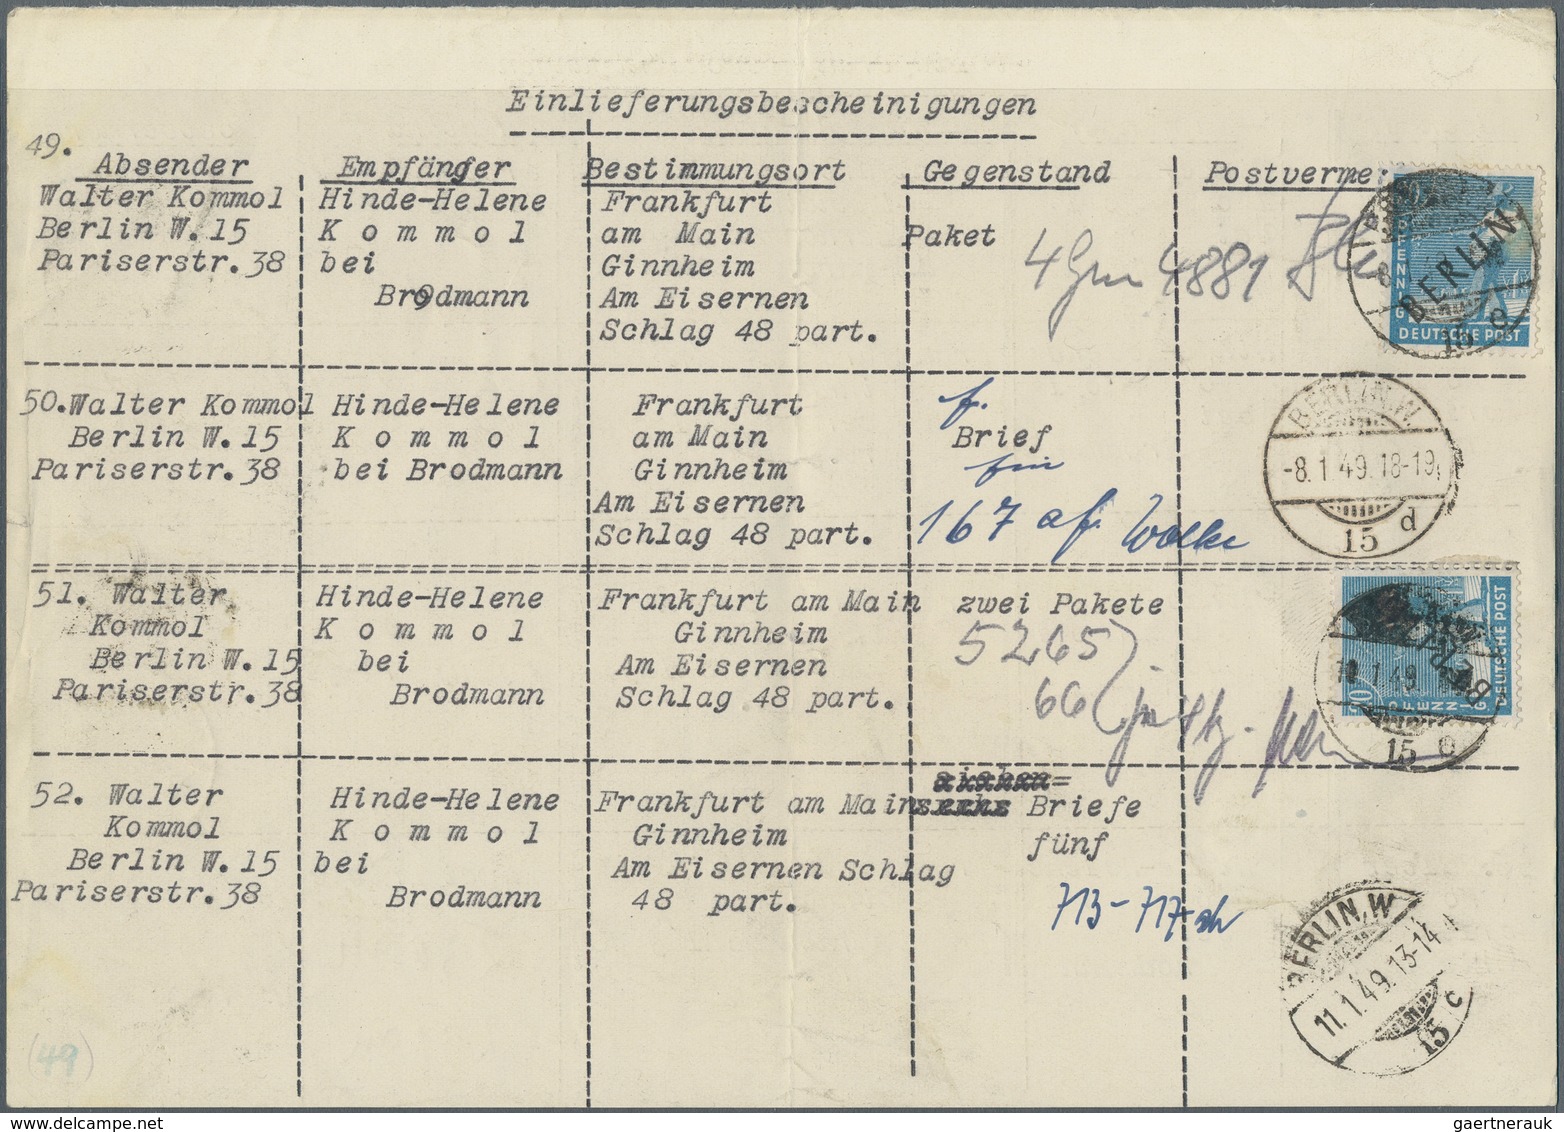 Einlieferungsbescheinigungen
49.
Absender Empfänger Bestimmungsort Gegenstand Postverme
Walter Kommol
Berlin W.15
Pariserstr.38
Hinde-Helene
K o m m o l
bei
Brodmann
Frankfurt
am Main
Ginnheim
Am Eisernen
Schlag 48 part.
Paket
4881
BERLIN
DEUTSCHE POST
15
50.Walter Kommol
Berlin W.15
Pariserstr.38
Hinde-Helene
K o m m o l
bei Brodmann
Frankfurt
am Main
Ginnheim
Am Eisernen
Schlag 48 part.
f.
Brief
167
BERLIN W
-8.1.49.18-19
15 d
51. Walter
Kommol
Berlin W.15
Pariserstr.38
Hinde-Helene
K o m m o l
bei
Brodmann
Frankfurt am Main
Ginnheim
Am Eisernen
Schlag 48 part.
zwei Pakete
5265
66
DEUTSCHE POST
PFENNIG
1.49
15
52. Walter
Kommol
Berlin W.15
Pariserstr.38
Hinde-Helene
K o m m o l
bei
Brodmann
Frankfurt am Main
Ginnheim
Am Eisernen Schlag
48 part.
Briefe
fünf
713-717
BERLIN,W
11.1.49.13-14
15 c
(49)
gaertnerauk